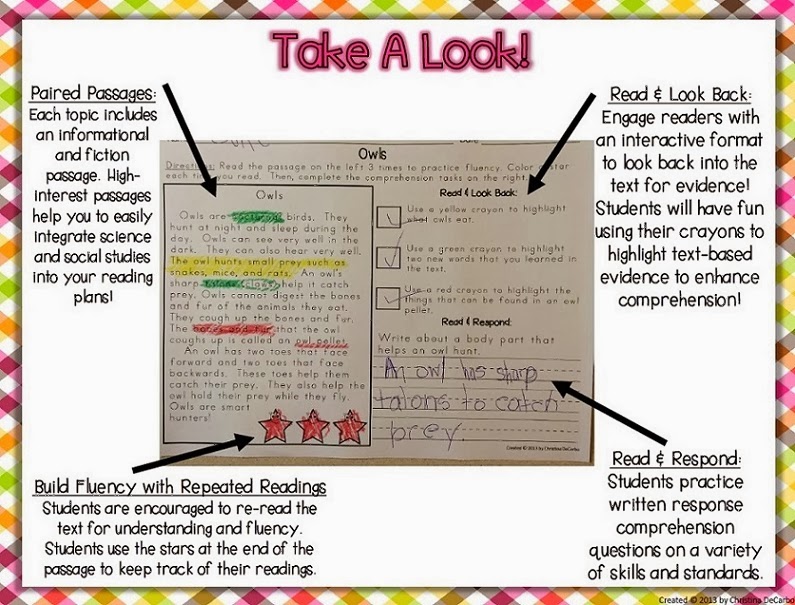 Take A Look!
Paired Passages:
Each topic includes
an informational
and fiction
passage. High-
interest passages
help you to easily
integrate science
and social studies
into your reading
plans!
Read & Look Back:
Engage readers with
an interactive format
to look back into the
text for evidence!
Students will have fun
using their crayons to
highlight text-based
evidence to enhance
comprehension!
Owls
Directions: Read the passage on the left 3 times to practice fluency. Color a star
each time you read. Then, complete the comprehension tasks on the right.
Owls
Owls are nocturnal birds. They
hunt at night and sleep during the
day. Owls can see very well in the
dark. They can also hear very well.
The owl hunts small prey such as
snakes, mice, and rats. An owl's
sharp talons (claws) help it catch
prey. Owls cannot digest the bones
and fur of the animals they eat.
They cough up the bones and fur.
The bones and fur that the owl
coughs up is called an owl pellet.
An owl has two toes that face
forward and two toes that face
backwards. These toes help them
catch their prey. They also help the
owl hold their prey while they fly.
Owls are smart
hunters!
Read & Look Back:
Use a yellow crayon to highlight
what owls eat.
Use a green crayon to highlight
two new words that you learned
in the text.
Use a red crayon to highlight the
things that can be found in an owl
pellet.
Read & Respond:
Write about a body part that
helps an owl hunt.
An owl has sharp
talons to catch
prey.
Created © 2013 by Christina DeCarbo
Build Fluency with Repeated Readings
Students are encouraged to re-read the
text for understanding and fluency.
Students use the stars at the end of the
passage to keep track of their readings.
Read & Respond:
Students practice
written response
comprehension
questions on a variety
of skills and standards.
Created © 2013 by Christina DeCarbo